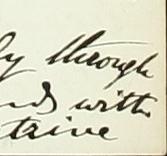 ly through
nds with
trive